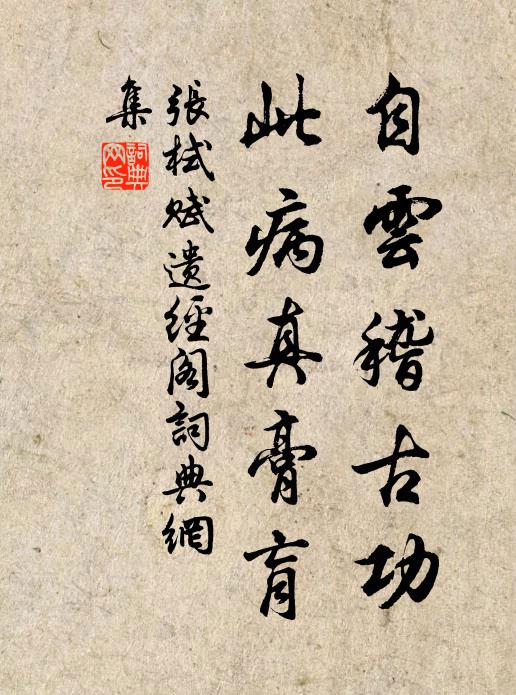 自雲稽古功
此病真膏肓
張栻賦遺經阁詞典網
集
詞典網印